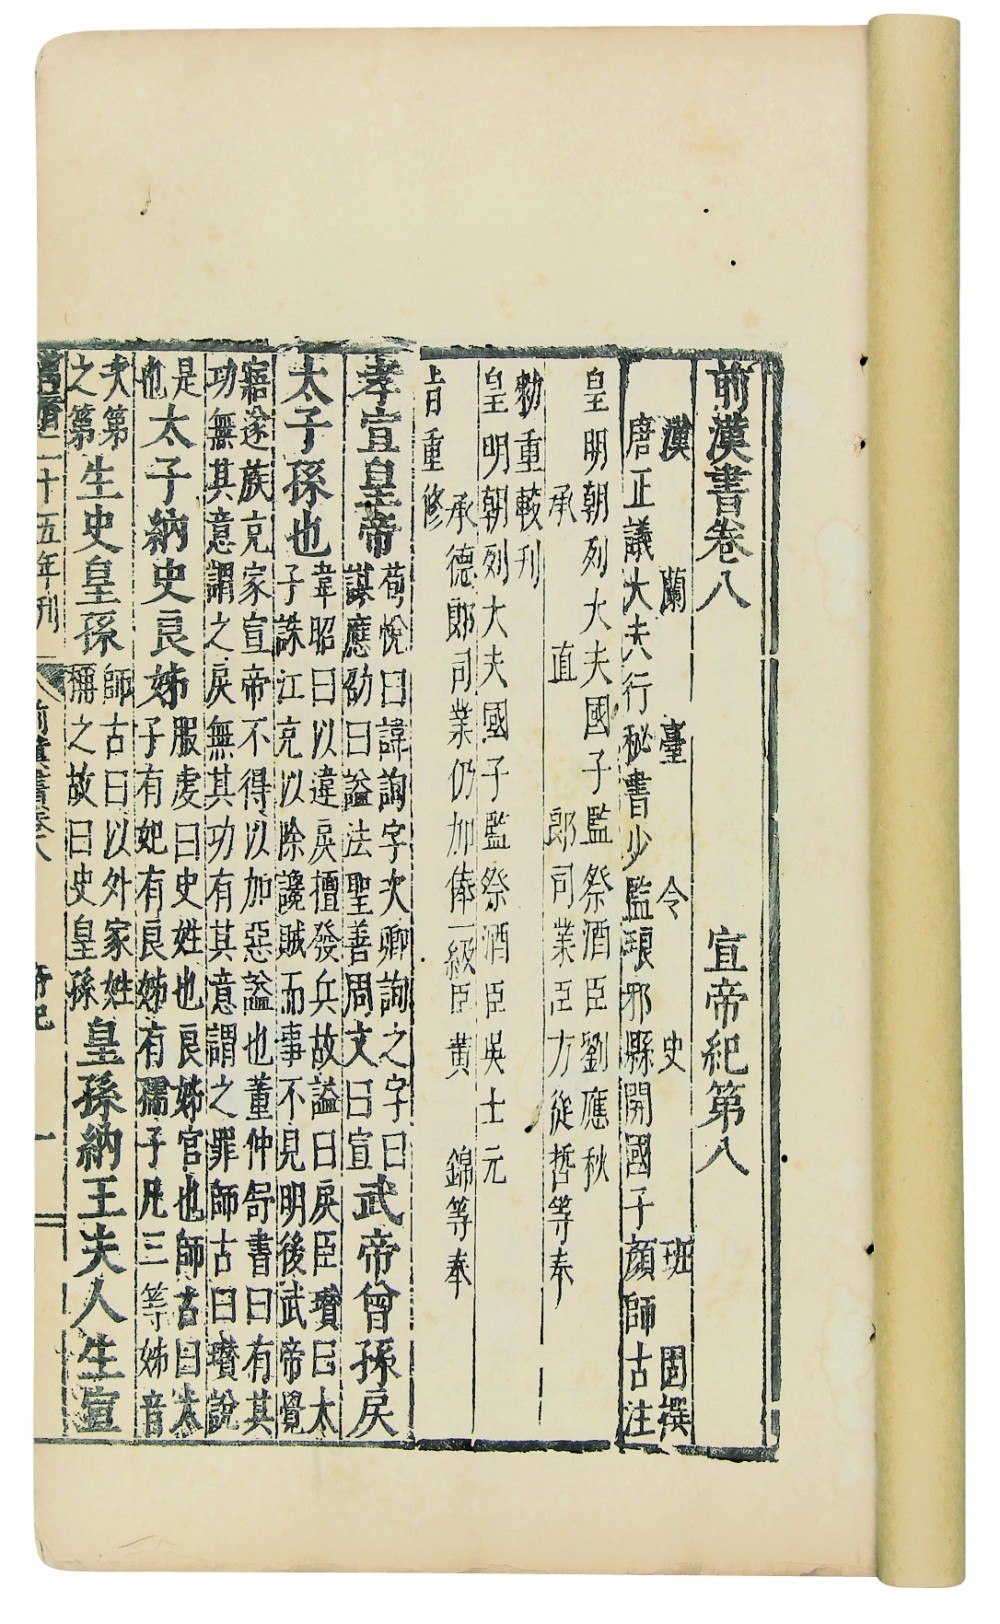 前漢書卷八 宣帝紀第八
漢蘭臺令史班固撰
唐正議大夫行秘書少監琅邪縣開國子顏師古注
皇明朝列大夫國子監祭酒臣劉應秋
承直郎司業臣方從哲等奉
勑重較刊
皇明朝列大夫國子監祭酒臣吳士元
承德郎司業仍加俸一級臣黃錦等奉
旨重修
孝宣皇帝
荀悅曰諱詢字次卿詢之字曰
謀應劭曰謚法聖善周文曰宣
武帝曾孫戾
太子孫也
韋昭曰以違戾擅發兵故謚曰戾臣瓚曰太
子誅江充以除讒賊而事不見明後武帝覺
寤遂族充家宣帝不得以加惡謚也董仲舒書曰有其
功無其意謂之戾無其功有其意謂之罪師古曰瓚說
是
也
太子納史良娣
服虔曰史姓也良娣官也師古曰太
子有妃有良娣有孺子凡三等娣音
次第
之第
生史皇孫
師古曰以外家姓
稱之故曰史皇孫
皇孫納王夫人生宣
二十五年刊
前漢書卷八
帝紀
一